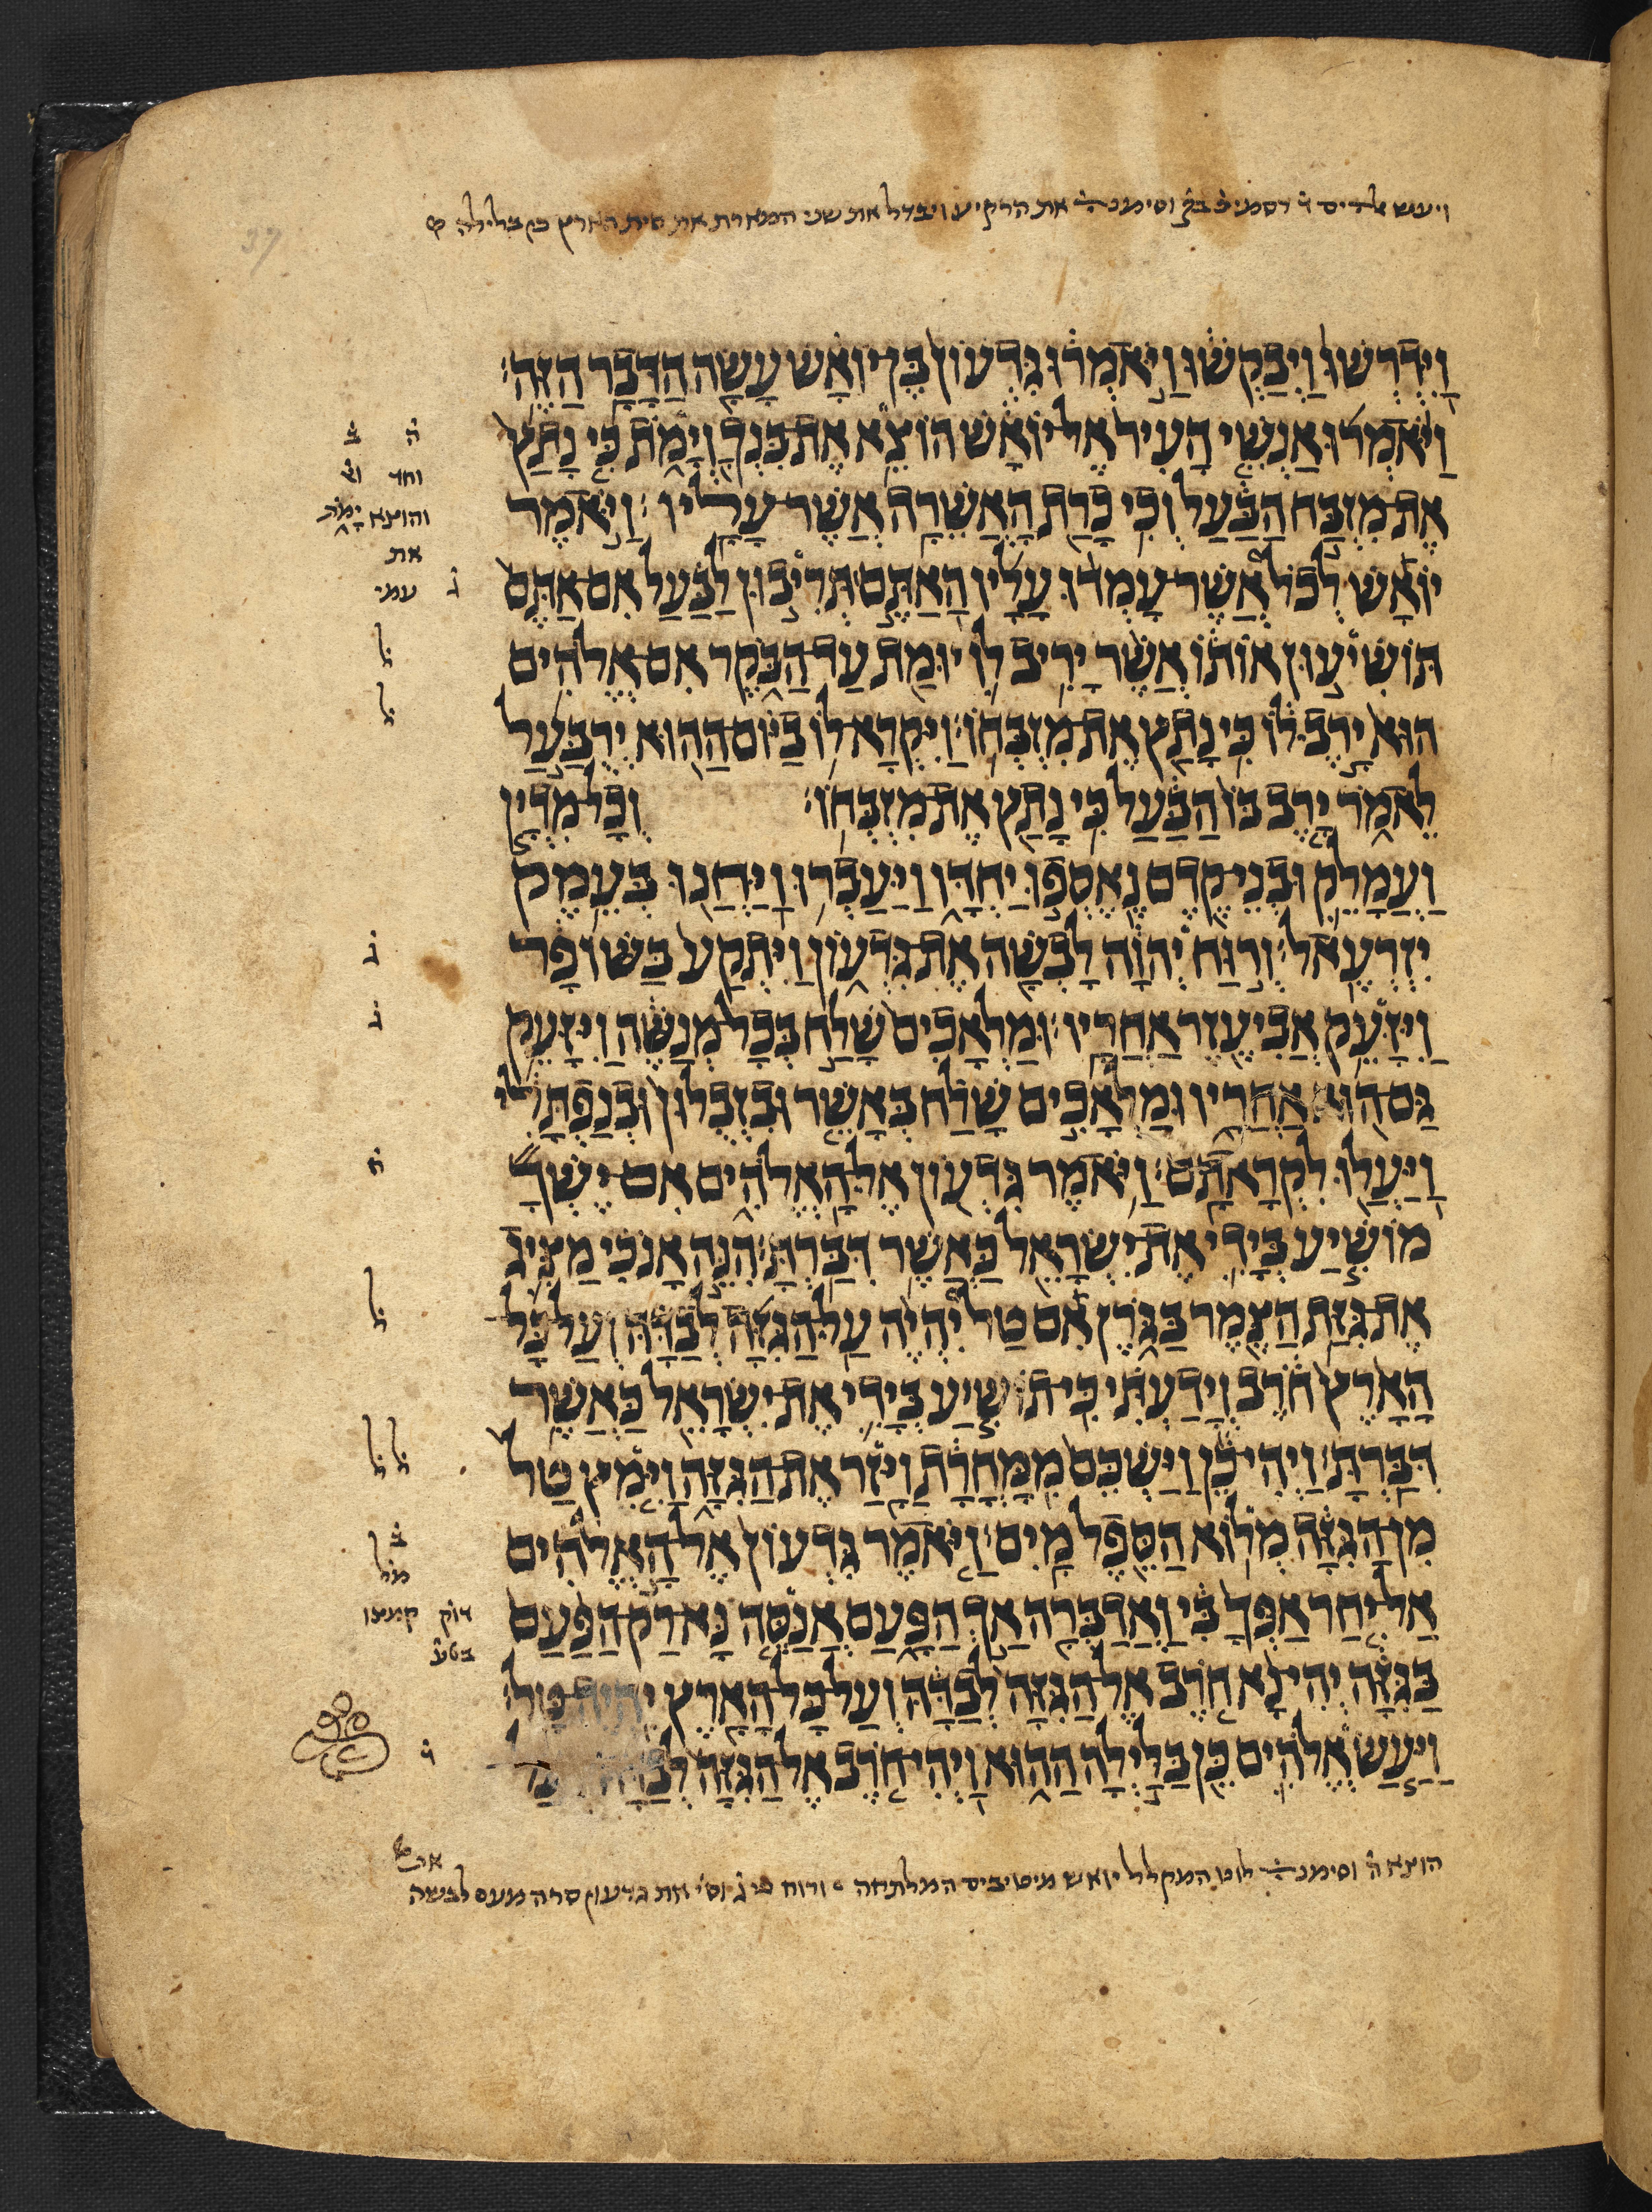 את הרקיע ויבדל את שני המארת את חית הארץ כן בלילה
וַיִּדְרְשׁוּ וַיְבַקְשׁוּ וַיֹּאמְרוּ גִּדְעוֹן בֶּן־יוֹאָשׁ עָשָׂה הַדָּבָר הַזֶּה׃
וַיֹּאמְרוּ אַנְשֵׁי הָעִיר אֶל־יוֹאָשׁ הוֹצֵא אֶת־בִּנְךָ וְיָמֹת כִּי נָתַץ
אֶת־מִזְבַּח הַבַּעַל וְכִי כָרַת הָאֲשֵׁרָה אֲשֶׁר־עָלָיו׃ וַיֹּאמֶר
יוֹאָשׁ לְכֹל אֲשֶׁר־עָמְדוּ עָלָיו הַאַתֶּם תְּרִיבוּן לַבַּעַל אִם־אַתֶּם
תּוֹשִׁיעוּן אוֹתוֹ אֲשֶׁר יָרִיב לוֹ יוּמַת עַד־הַבֹּקֶר אִם־אֱלֹהִים
הוּא יָרֶב לוֹ כִּי נָתַץ אֶת־מִזְבְּחוֹ׃ וַיִּקְרָא־לוֹ בַיּוֹם־הַהוּא יְרֻבַּעַל
לֵאמֹר יָרֶב בּוֹ הַבַּעַל כִּי נָתַץ אֶת־מִזְבְּחוֹ׃ וְכָל־מִדְיָן
וַעֲמָלֵק וּבְנֵי־קֶדֶם נֶאֶסְפוּ יַחְדָּו וַיַּעַבְרוּ וַיַּחֲנוּ בְּעֵמֶק
יִזְרְעֶאל׃ וְרוּחַ יְהוָה לָבְשָׁה אֶת־גִּדְעוֹן וַיִּתְקַע בַּשּׁוֹפָר
וַיִּזָּעֵק אֲבִיעֶזֶר אַחֲרָיו׃ וּמַלְאָכִים שָׁלַח בְּכָל־מְנַשֶּׁה וַיִּזָּעֵק
גַּם־הוּא אַחֲרָיו וּמַלְאָכִים שָׁלַח בְּאָשֵׁר וּבִזְבֻלוּן וּבְנַפְתָּלִי
וַיַּעֲלוּ לִקְרָאתָם׃ וַיֹּאמֶר גִּדְעוֹן אֶל־הָאֱלֹהִים אִם־יֶשְׁךָ
מוֹשִׁיעַ בְּיָדִי אֶת־יִשְׂרָאֵל כַּאֲשֶׁר דִּבַּרְתָּ׃ הִנֵּה אָנֹכִי מַצִּיג
אֶת־גִּזַּת הַצֶּמֶר בַּגֹּרֶן אִם טַל יִהְיֶה עַל־הַגִּזָּה לְבַדָּהּ וְעַל־כָּל־
הָאָרֶץ חֹרֶב וְיָדַעְתִּי כִּי־תוֹשִׁיעַ בְּיָדִי אֶת־יִשְׂרָאֵל כַּאֲשֶׁר
דִּבַּרְתָּ׃ וַיְהִי־כֵן וַיַּשְׁכֵּם מִמָּחֳרָת וַיָּזַר אֶת־הַגִּזָּה וַיִּמֶץ טַל
מִן־הַגִּזָּה מְלוֹא הַסֵּפֶל מָיִם׃ וַיֹּאמֶר גִּדְעוֹן אֶל־הָאֱלֹהִים
אַל־יִחַר אַפְּךָ בִּי וַאֲדַבְּרָה אַךְ הַפָּעַם אֲנַסֶּה נָּא־רַק־הַפַּעַם
בַּגִּזָּה יְהִי־נָא חֹרֶב אֶל־הַגִּזָּה לְבַדָּהּ וְעַל־כָּל־הָאָרֶץ יִהְיֶה־טָּל׃
וַיַּעַשׂ אֱלֹהִים כֵּן בַּלַּיְלָה הַהוּא וַיְהִי־חֹרֶב אֶל־הַגִּזָּה לְבַדָּהּ
וחד
והוצא ימת
את
עמי
ל
ל
ג
ג
ל
ל ל
ב
מל
קמצו
הוצא ה וסימנ לוט המקלל יואש מיטיבים המלתחה ורוח ג וס את גדעון סרה מעם לבשה